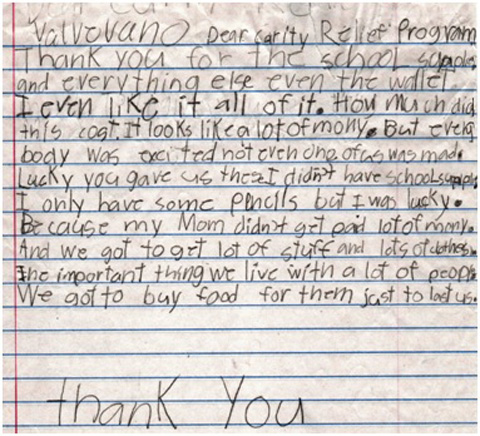 Valvorano Dear Carity Relief Program
Thank you for the school supplies
and everything else even the wallet
I even like it all of it. How much did
this cost. It looks like a lot of mony. But every
body was excited not even one of as was mad.
Lucky you gave us these I didn't have school supplies
I only have some pencils but I was lucky.
Because my Mom didn't get paid lot of mony.
And we got to get lot of stuff and lots of clothes.
The important thing we live with a lot of people.
We got to buy food for them just to last us.
thank You